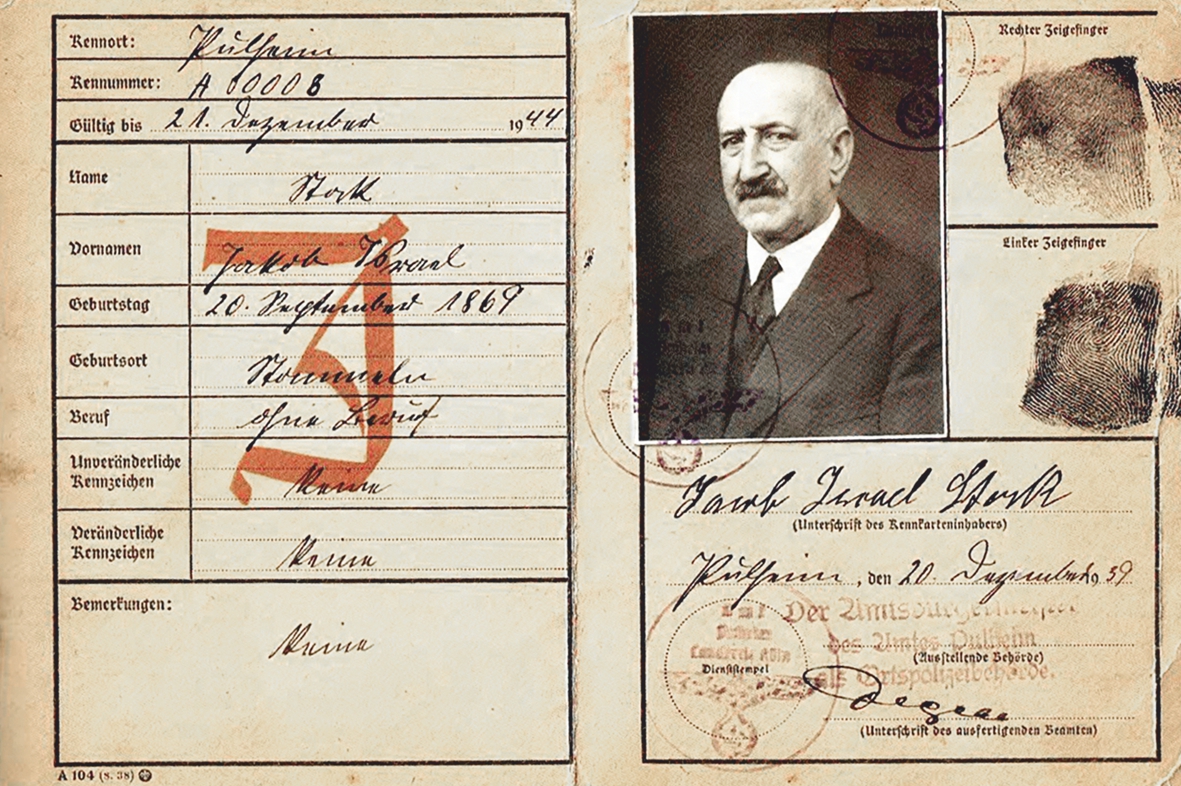 Kennort: Pulheim
Kennummer: A 00008
Gültig bis 21. Dezember 1944
Name Stock
Vornamen Jakob Israel
Geburtstag 20. September 1869
Geburtsort Stommeln
Beruf ohne Beruf
Unveränderliche
Kennzeichen Keine
Veränderliche
Kennzeichen Keine
Bemerkungen:
Keine
J
A 104 (8. 38)
Rechter Zeigefinger
Linker Zeigefinger
Jacob Israel Stock
(Unterschrift des Kennkarteninhabers)
Pulheim, den 20. Dezember 39
Der Amtsbürgermeister
des Amtes Pulheim
(Ausstellende Behörde)
als Ortspolizeibehörde.
Amt
Landkreis Köln
Dienststempel
(Unterschrift des ausfertigenden Beamten)